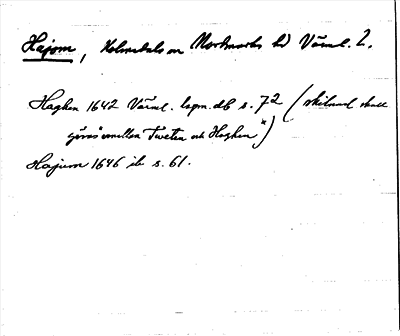 Hajom, Holmedals sn Nordmarks hd Värml. l.
Hagken 1642 Värml. lagm. db s. 72 (skilnad skall
göras emellan Tweten och Hagken)
Hajum 1646 ib s. 61.